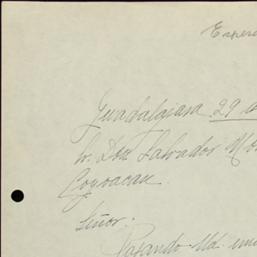 Guadalajara 29
Sr. Don Salvador
Coyoacan
Señor:
Pasando Ud.